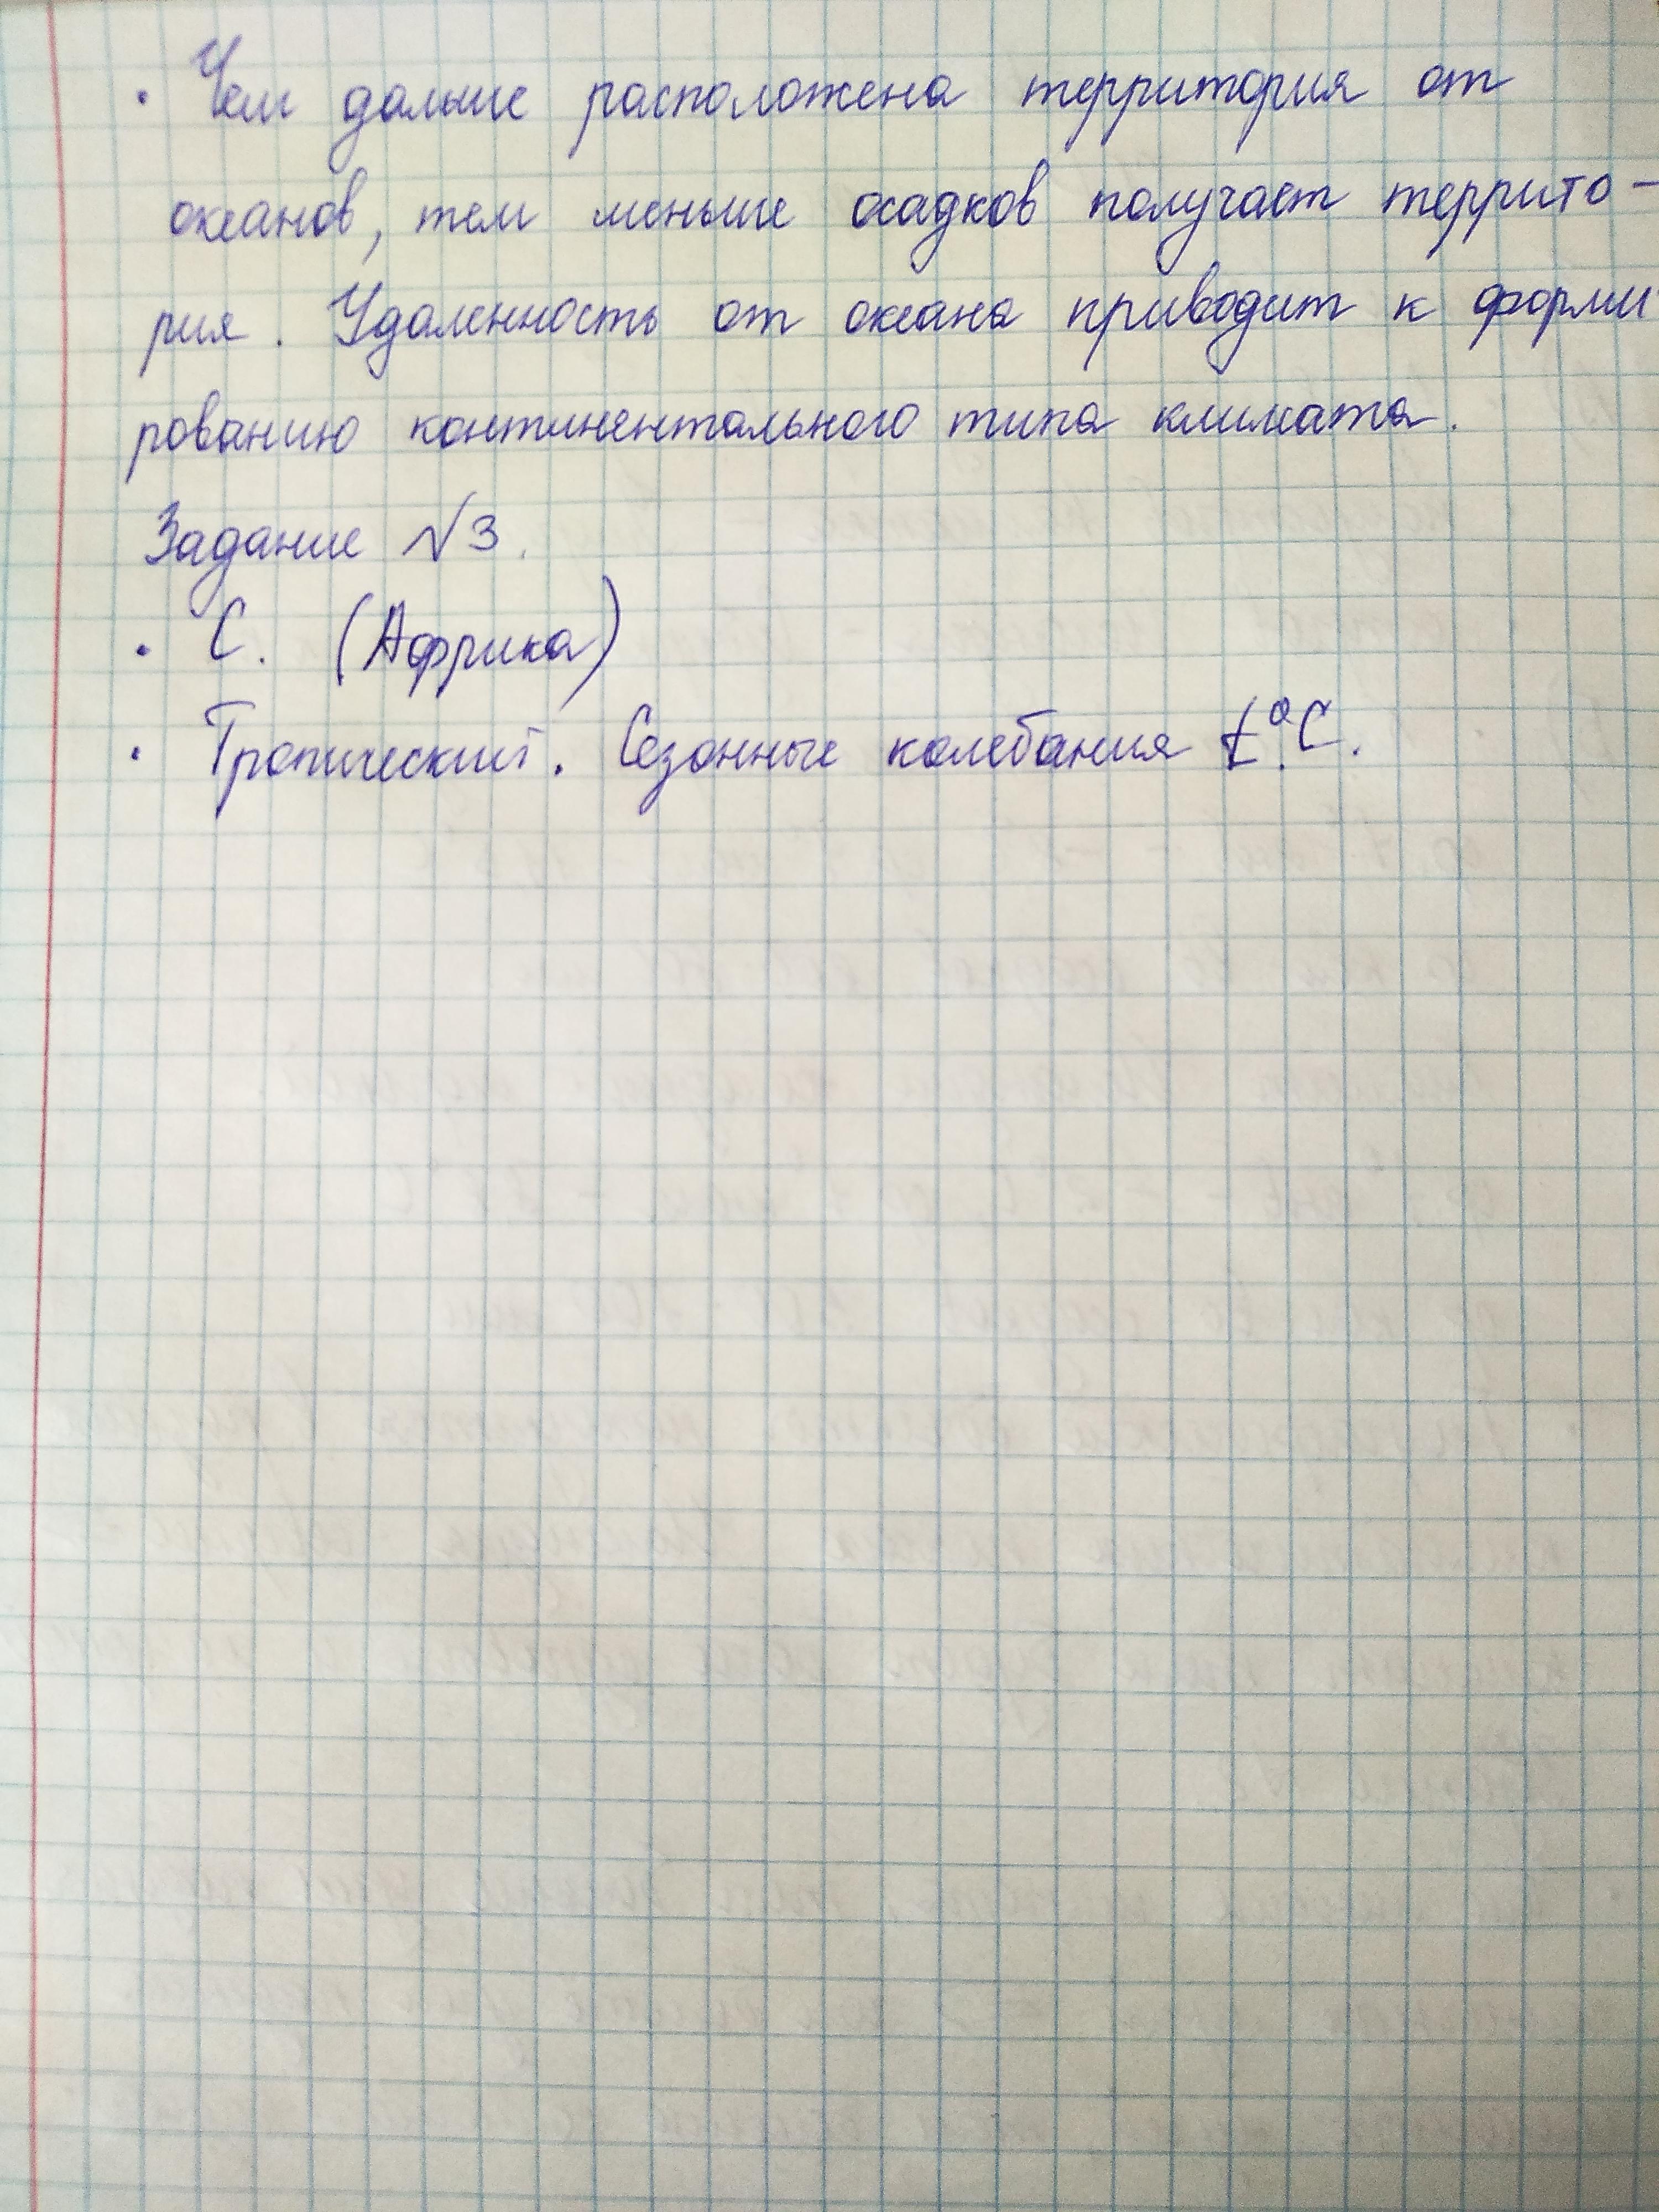 · Чем дальше расположена территория от
океанов, тем меньше осадков получает террито-
рия. Удаленность от океана приводит к форми-
рованию континентального типа климата.
Задание №3.
· С. (Африка)
· Тропический. Сезонные колебания t°C.